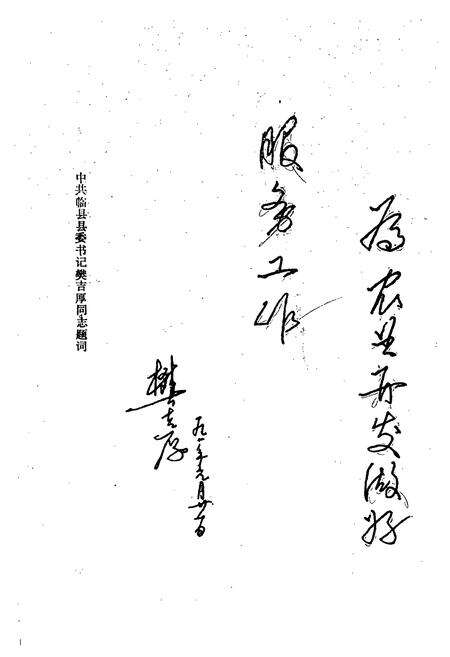 为农业开发做好
服务工作
樊吉厚
九一年元月廿一日
中共临县县委书记樊吉厚同志题词